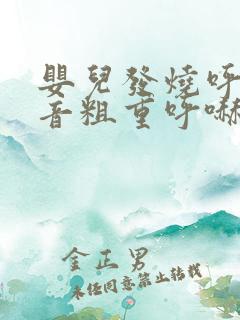 嬰兒發燒呼
音粗重呼嚇
金正男
未經同意禁止转载